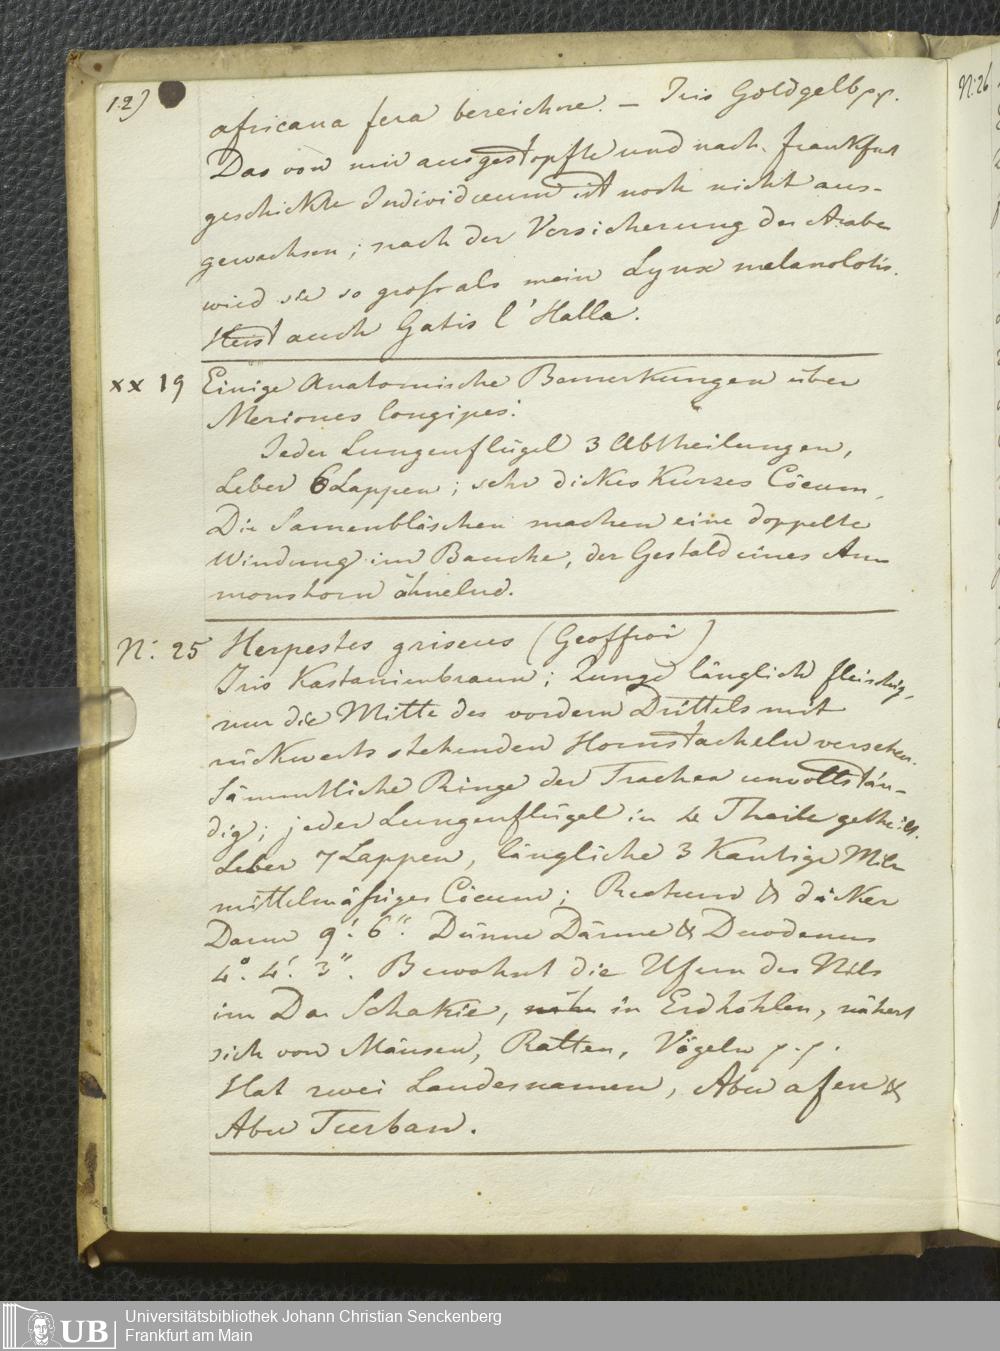 12)
africana fera bezeichne. – Iris Goldgelb pp.
Das von mir ausgestopfte und nach Frankfurt
geschickte Individuum ist noch nicht aus-
gewachsen; nach der Versicherung der Araber
wird sie so groß als mein Lynx melanolotis.
Heist auch Gatis l'Halla.
xx 19 Einige Anatomische Bemerkungen über
Meriones longipes.
Jeder Lungenflügel 3 Abtheilungen,
Leber 6 Lappen; sehr dickes Kurzes Cöcum,
Die Samenbläschen machen eine doppelte
Windung im Bauche, der Gestald eines Am
monshorn ähnelnd.
N: 25 Herpestes griseus (Geoffroi)
Iris Kastanienbraun; Zunge länglich fleischig,
nur die Mitte des vordern Drittels mit
rückwerts stehenden Hornstacheln versehen.
Sämmtliche Ringe der Trachea unvollstän-
dig; jeder Lungenflügel in 4 Theile getheilt.
Leber 7 Lappen, längliche 3 Kantige Milz
mittelmäßiges Cöcum; Rectum & dicker
Darm 9'. 6". Dünne Därme & Duodenum
4°. 4'. 3". Bewohnt die Ufern des Nils
im Dar Schakie, in Erdhöhlen, nähert
sich von Mäusen, Ratten, Vögeln p.p.
Hat zwei Landesnamen, Abu afen &
Abu Turban.
N: 26
Universitätsbibliothek Johann Christian Senckenberg
Frankfurt am Main
UB